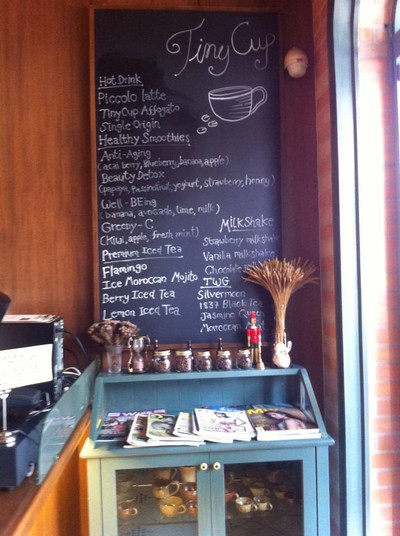 Tiny Cup
Hot Drink
Piccolo latte
TinyCup Affogato
Single Origin
Healthy Smoothies
Anti-Aging
(acai berry, blueberry, banana, apple)
Beauty Detox
(papaya, passionfruit, yoghurt, strawberry, honey)
Well-BEing
(banana, avocado, lime, milk)
Greeny-C
(Kiwi, apple, fresh mint)
Premium Iced Tea
Flamingo
Ice Moroccan Mojito
Berry Iced Tea
Lemon Iced Tea
MilkShake
Strawberry milkshake
Vanilla milkshake
Chocolate
TWG
Silvermoon
1837 Black Tea
Jasmine Queen
Moroccan